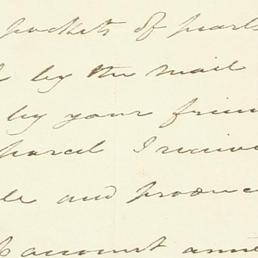 pockets of pearl
by the mail
by your frien
parcel I receiv
le and produc
account anne